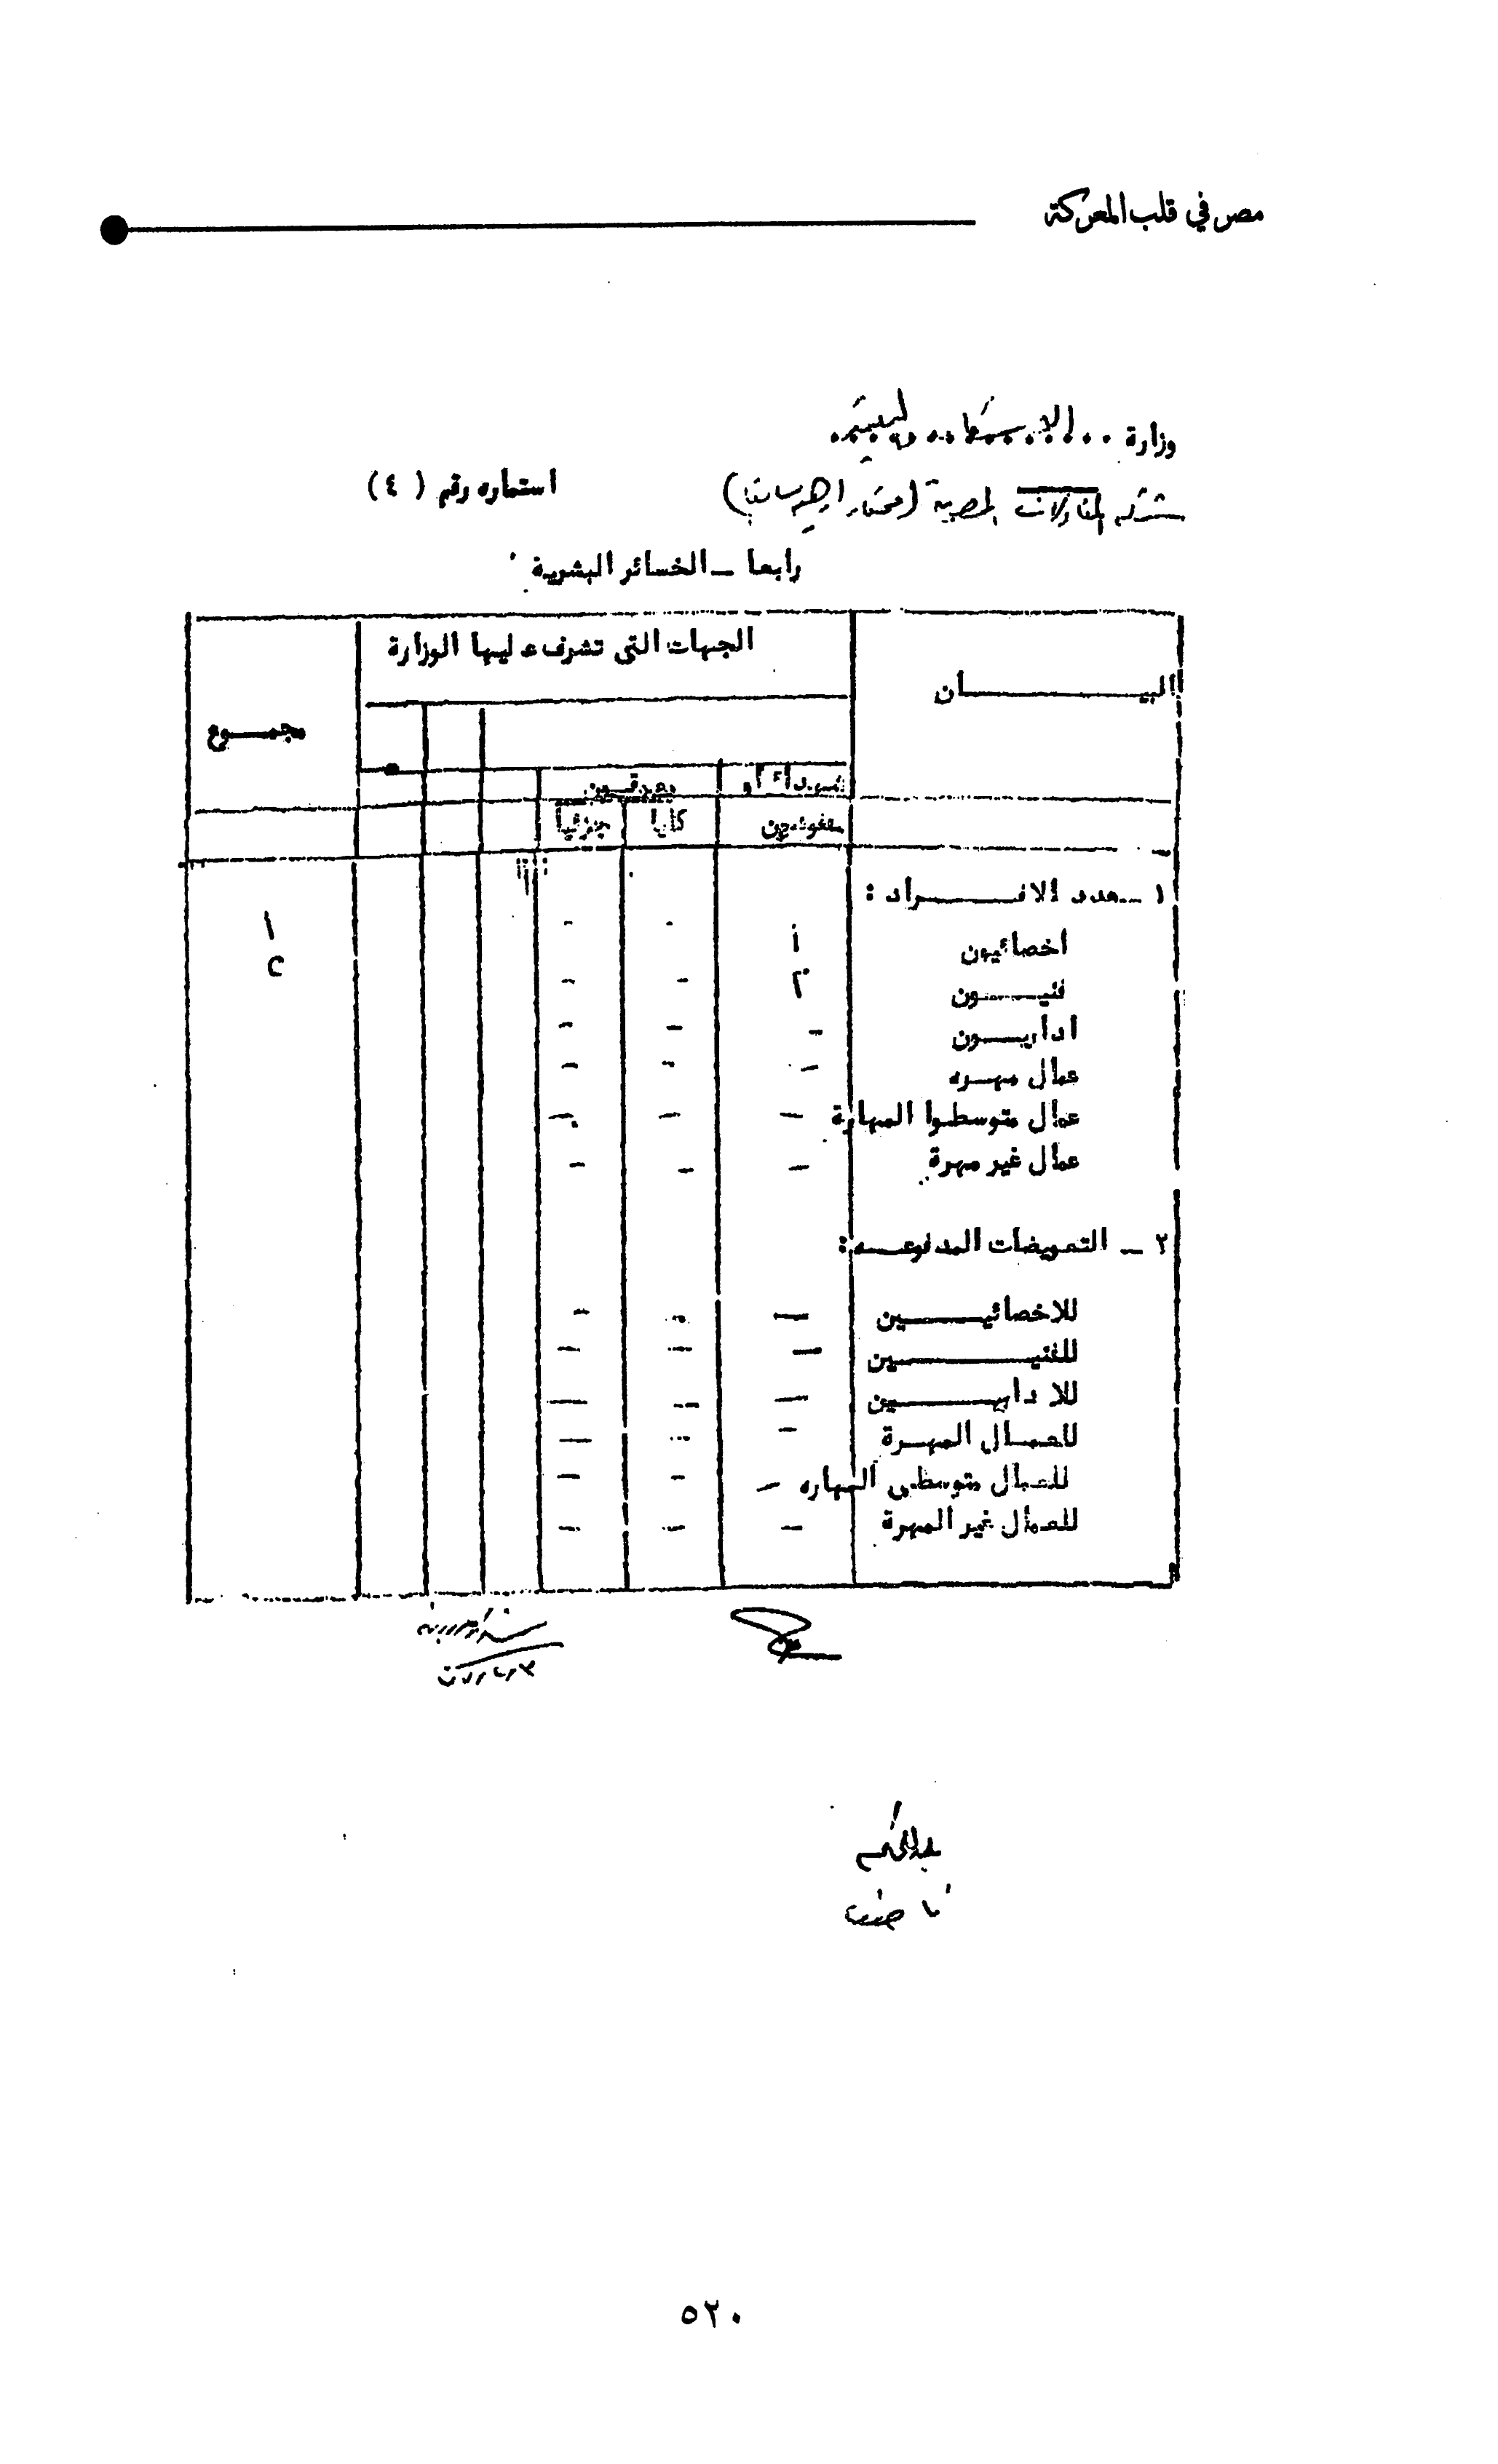 مصر في قلب المعركة
وزارة .. الاسكان والتعمير
شركة المقاولات المصرية (مختار ابراهيم سابقا)
استماره رقم (٤)
رابعا ــ الخسائر البشرية
البيــان
الجهات التى تشرف عليها الوزارة
مجمــوع
شهداء أو
معوقــين
مفقودين
كليا
جزئيا
١ ــ عدد الافــراد :
اخصائيون ١ - - ١
فنيــون ٢ - - ٢
اداريــون - - -
عمال مهــره - - -
عمال متوسطوا المهارة - - -
عمال غير مهرة - - -
٢ ــ التعويضات المدفوعــه :
للاخصائيــين - - -
للفنيــين - - -
للاداريــين - - -
للعمــال المهــرة - - -
للعمال متوسطى المهاره - - -
للعمال غير المهرة - - -
عبدالحكيم
٥٢٠